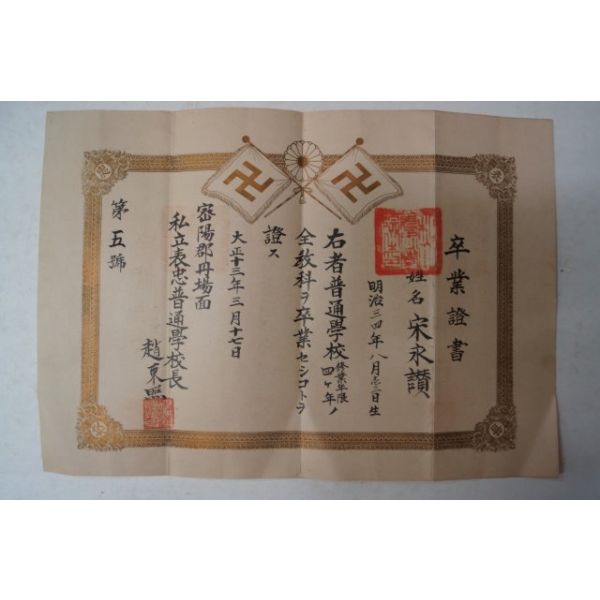 卒業證書
姓名 宋永讃
明治三四年八月壱三日生
右者普通學校修業年限四ヶ年ノ
全教科ヲ卒業セシコトヲ
證ス
大正十三年三月十七日
密陽郡丹場面
私立表忠普通學校長
趙東
第五號